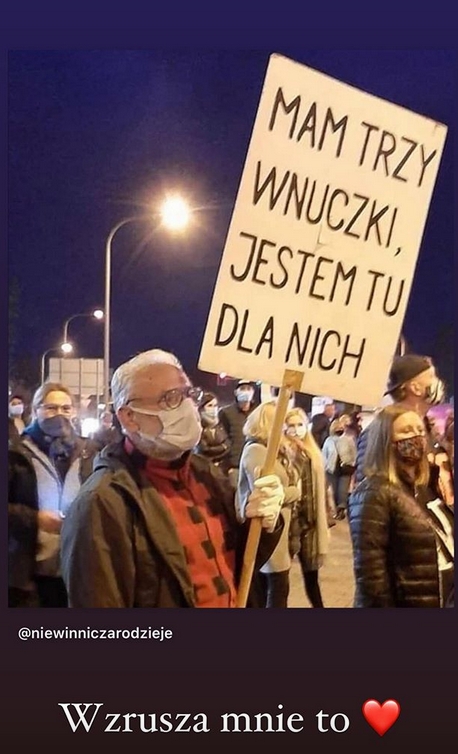 MAM TRZY
WNUCZKI,
JESTEM TU
DLA NICH
@niewinniczarodzieje
Wzrusza mnie to ❤️